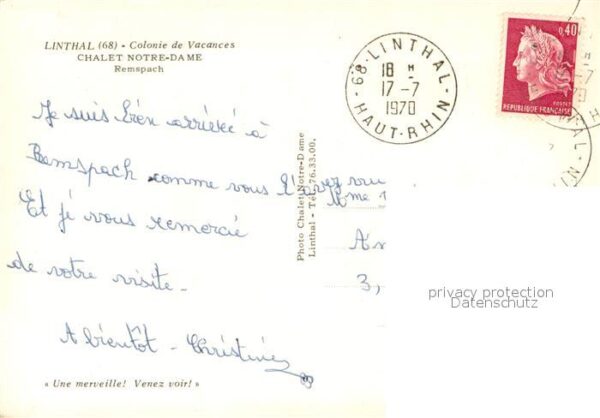 LINTHAL (68) - Colonie de Vacances
CHALET NOTRE-DAME
Remspach
68-LINTHAL-
18 H
17-7
1970
HAUT-RHIN
0,40
POSTES
REPUBLIQUE FRANÇAISE
Je suis bien arrivée à
Remspach comme vous l'avez vu
Et je vous remercie
de votre visite.
A bientôt - Christine
« Une merveille! Venez voir! »
Photo Chalet Notre-Dame
Linthal - Tél. 76.33.00.
Mme
3,
privacy protection
Datenschutz